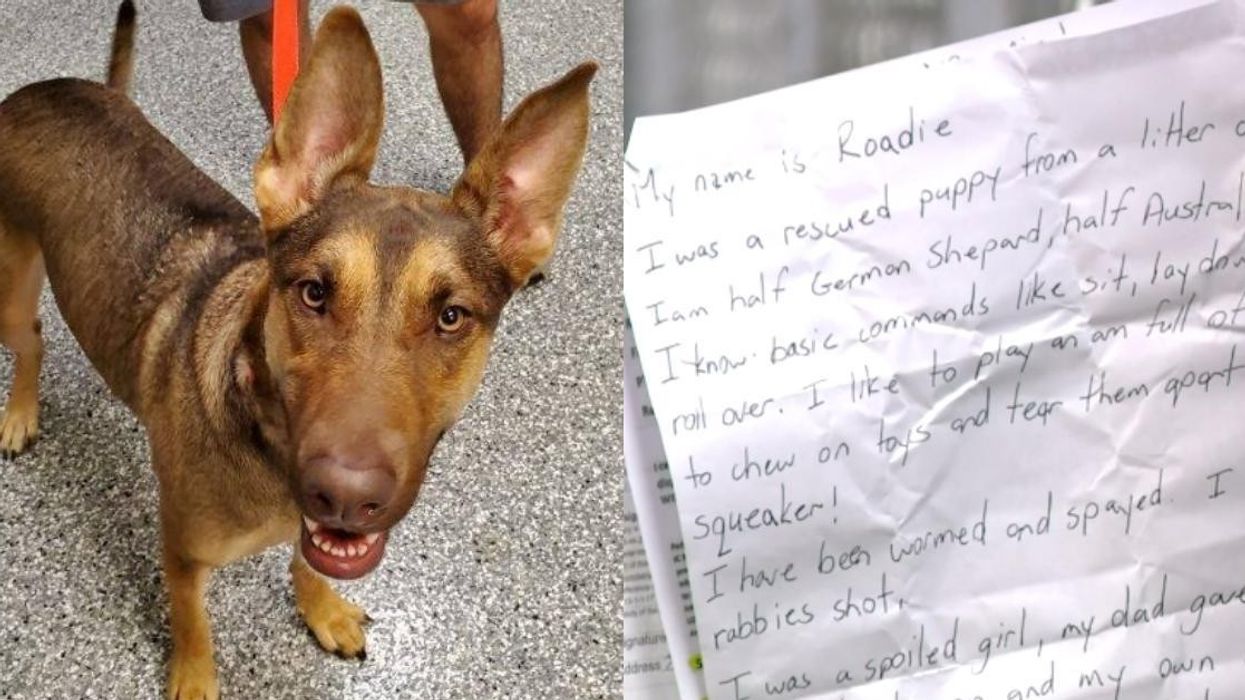 My name is Roadie
I was a rescued puppy from a litter
I am half German Shepard, half Austral
I know basic commands like sit, lay down
roll over. I like to play an am full of
to chew on toys and tear them apart
squeaker!
I have been wormed and spayed. I
rabbies shot.
I was a spoiled girl, my dad gave
and my own